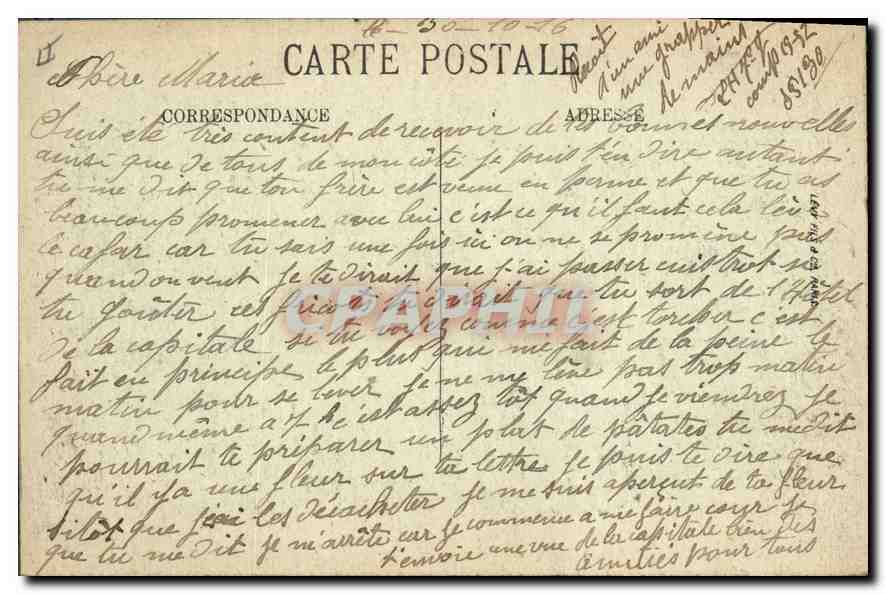 le 30-10-16
CARTE POSTALE
Chère Maria
CORRESPONDANCE
ADRESSE
Suis été très content de recevoir de tes bonnes nouvelles
ainsi que de tous de mon côté je puis t'en dire autant
tu me dit que ton frère est venu en perme et que tu as
beaucoup promener avec lui c'est ce qu'il faut cela lève
le cafar car tu sais une fois ici on ne se promène pas
quand on veut je te dirait que j'ai passer cuistrot si
tu goûter ces fricots tu dirait que tu sort de l'Hôtel
de la capitale si tu voyez comme c'est torcher c'est
fait en principe le plus qui me fait de la peine le
matin pour se lever je ne me lève pas trop matin
quand même a 7 h c'est assez tôt quand je viendrez je
pourrait te préparer un plat de patates tu me dit
qu'il y a une fleur sur ta lettre je puis te dire que
sitôt que j'ai les décacheter je me suis aperçut de ta fleur
que tu me dit je m'arrête car je commence a me faire
t'envoie une vue de la capitale bien des
amitiés pour tous
d'un ami
une
de main
LEVY FILS & CIE
CPAPHIL